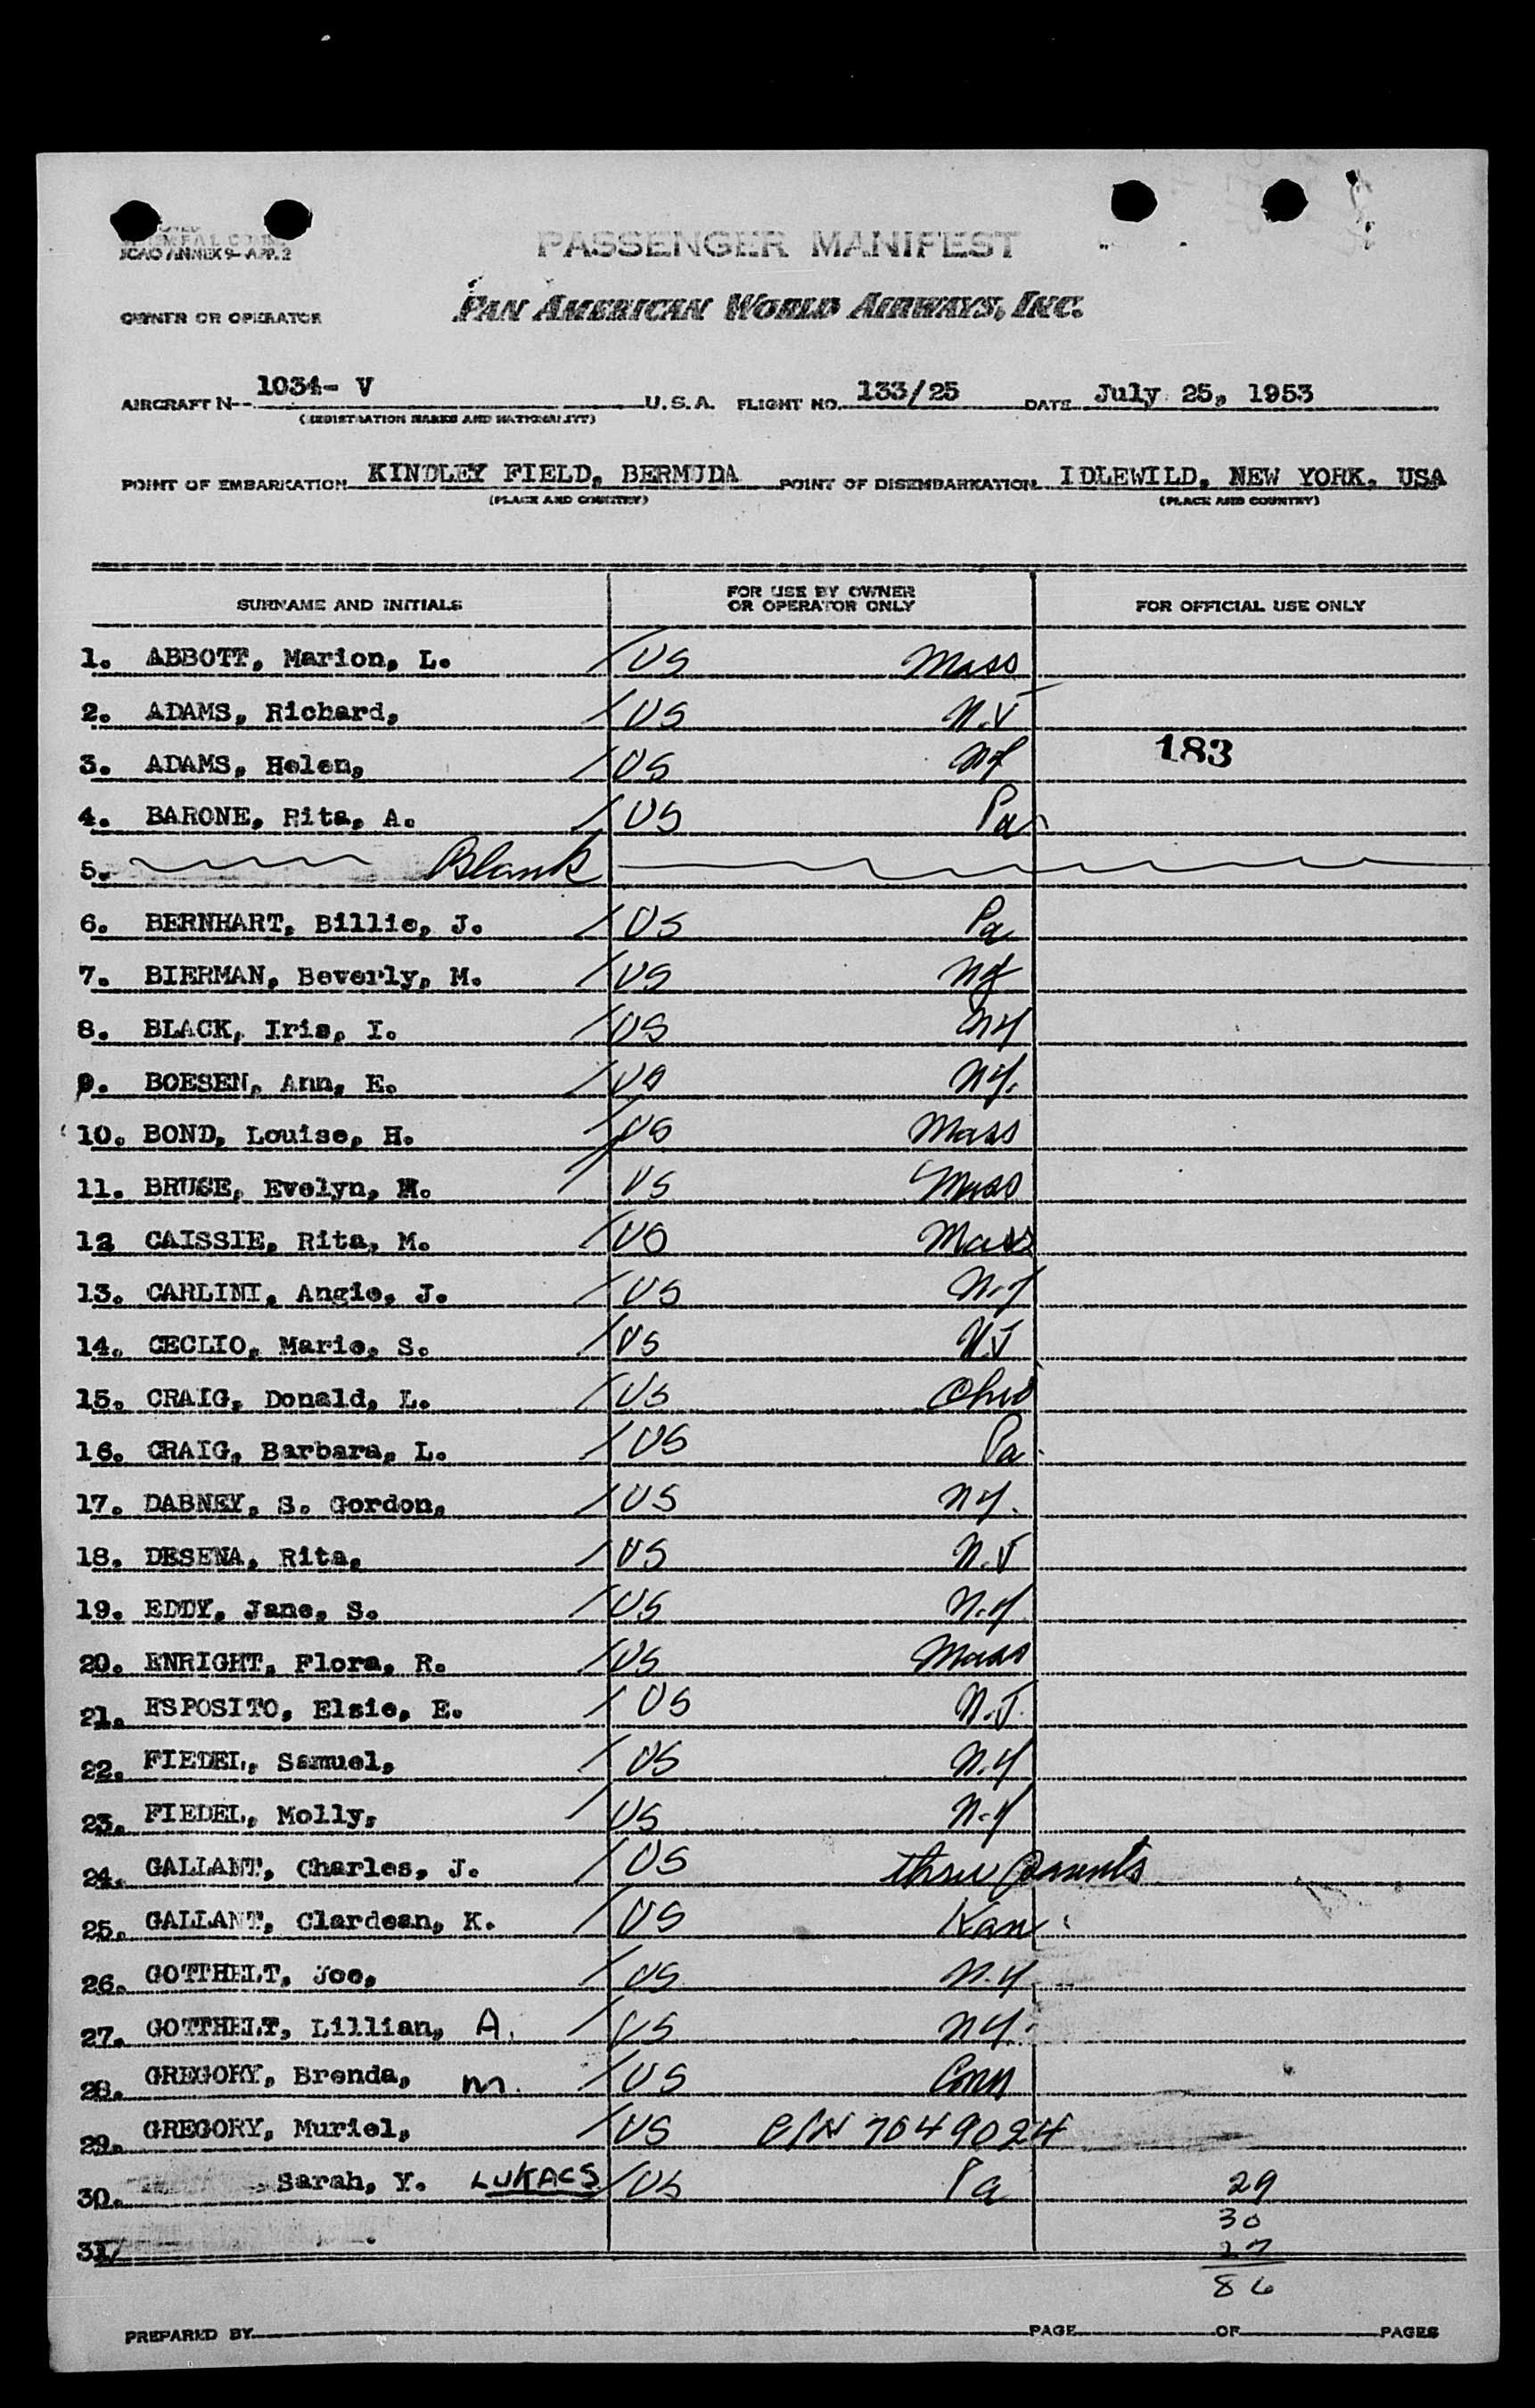 ICAO ANNEX 9- APP. 2
PASSENGER MANIFEST
OWNER OR OPERATOR PAN AMERICAN WORLD AIRWAYS, INC.
AIRCRAFT N- 1034- V U.S.A. FLIGHT NO. 133/25 DATE July 25, 1953
(REGISTRATION MARKS AND NATIONALITY)
POINT OF EMBARKATION KINDLEY FIELD, BERMUDA POINT OF DISEMBARKATION IDLEWILD, NEW YORK, USA
(PLACE AND COUNTRY) (PLACE AND COUNTRY)
SURNAME AND INITIALS FOR USE BY OWNER OR OPERATOR ONLY FOR OFFICIAL USE ONLY
1. ABBOTT, Marion, L. / US Mass
2. ADAMS, Richard, / US N.J
3. ADAMS, Helen, / US NJ 183
4. BARONE, Rita, A. / US Pa
5. Blank
6. BERNHART, Billie, J. / US Pa
7. BIERMAN, Beverly, M. / US NJ
8. BLACK, Iris, I. / US NY
9. BOESEN, Ann, E. / US NY.
10. BOND, Louise, H. / US Mass
11. BRUSE, Evelyn, M. / US Mass
12 CAISSIE, Rita, M. / US Mass
13. CARLINI, Angie, J. / US N.Y
14. CECLIO, Marie, S. / US N.J
15. CRAIG, Donald, L. / US Ohio
16. CRAIG, Barbara, L. / US Pa
17. DABNEY, S. Gordon, / US NY.
18. DESENA, Rita, / US N.J
19. EDDY, Jane, S. / US N.Y
20. ENRIGHT, Flora, R. / US Mass
21. ESPOSITO, Elsie, E. / US N.J.
22. FIEDEL, Samuel, / US N.Y
23. FIEDEL, Molly, / US N.Y
24. GALLANT, Charles, J. / US thru parents
25. GALLANT, Clardean, K. / US Kan
26. GOTTHELT, Joe, / US N.Y.
27. GOTTHELT, Lillian, A. / US NY.
28. GREGORY, Brenda, M. / US Conn
29. GREGORY, Muriel, / US C/N 7049024
30. Sarah, Y. LUKACS / US Pa 29
30
31/ 27
86
PREPARED BY PAGE OF PAGES